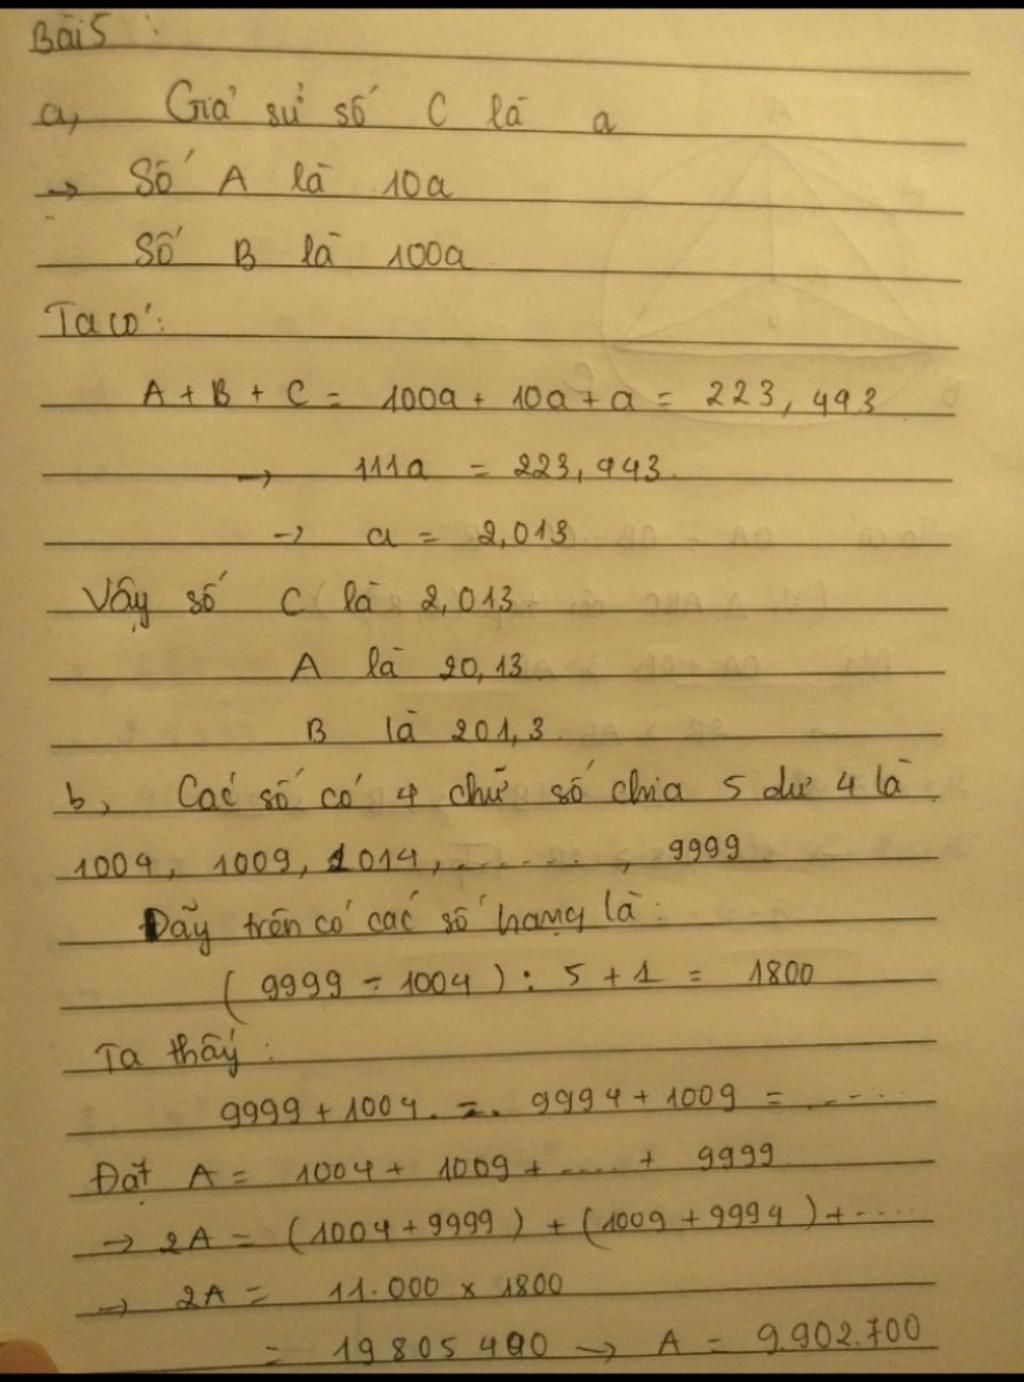 Bài 5 :
a, Giả sử số C là a
→ Số A là 10a
Số B là 100a
Ta có :
A + B + C = 100a + 10a + a = 223,493
→ 111a = 223,943
→ a = 2,013
Vậy số C là 2,013
A là 20,13
B là 201,3
b, Các số có 4 chữ số chia 5 dư 4 là
1004, 1009, 1014, ......., 9999
Dãy trên có các số hạng là :
( 9999 - 1004 ) : 5 + 1 = 1800
Ta thấy :
9999 + 1004 = 9994 + 1009 = .....
Đặt A = 1004 + 1009 + ..... + 9999
→ 2A = (1004 + 9999) + (1009 + 9994) + .....
→ 2A = 11.000 x 1800
= 19805400 → A = 9.902.700